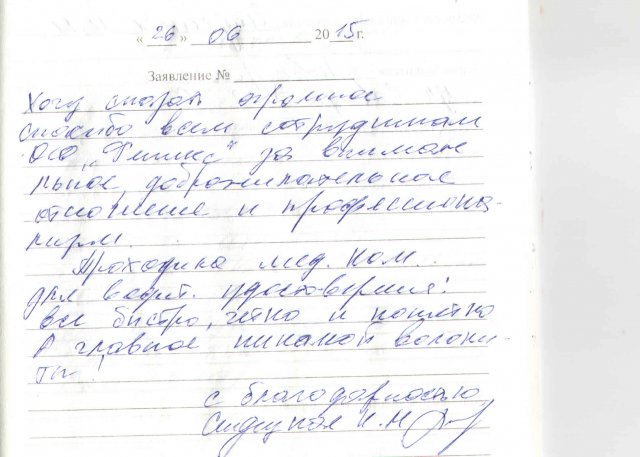 « 26 » 06 2015 г.
Заявление №
Хочу сказать огромное
спасибо всем сотрудникам
ООО за вниматель
льное, доброжелательное
отношение и профессиона-
лизм.
Проходила мед. ком.
для водит. удостоверения:
все быстро, четко и понятно
А главное никакой волоки-
ты!
с благодарностью